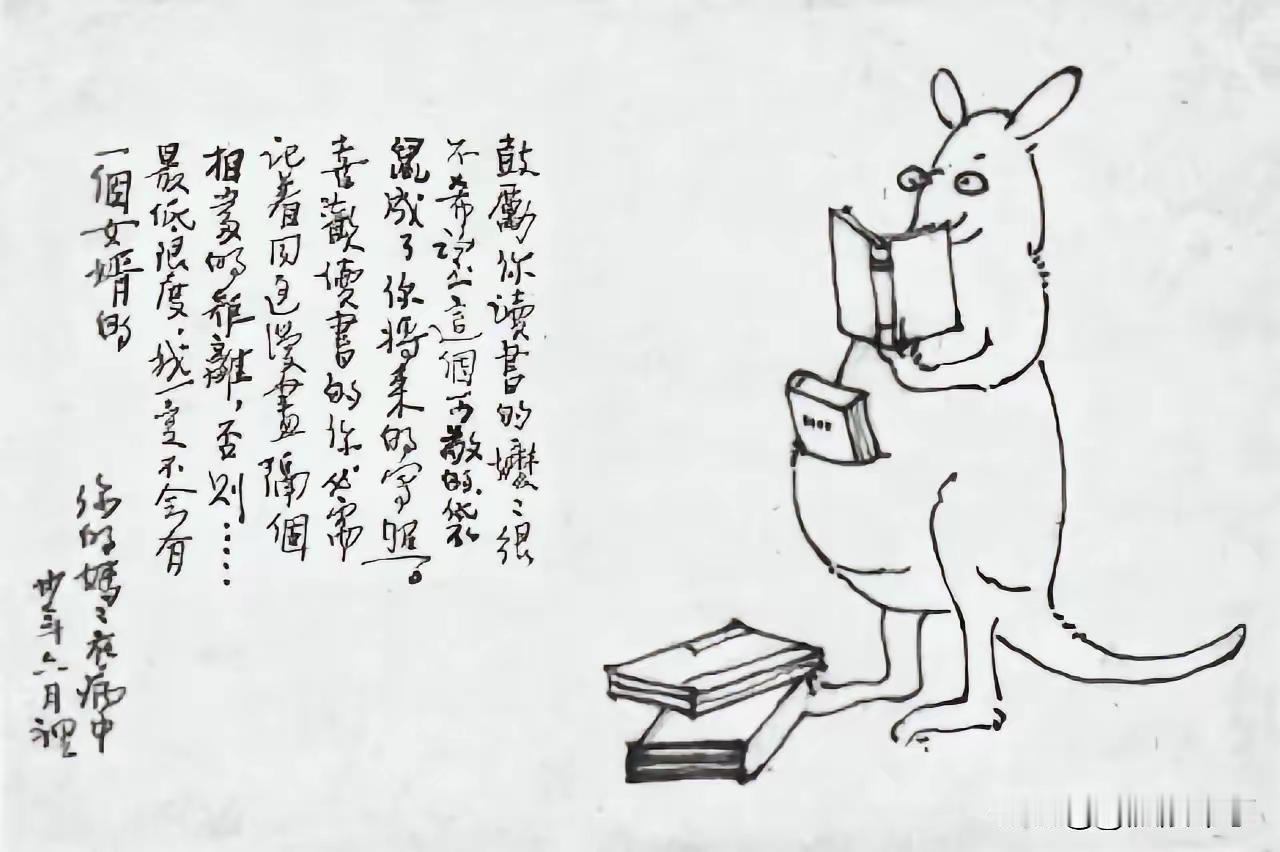 鼓勵你讀書的嬷〻很
不希望這個可敬的袋
鼠成了你將來的寫照。
喜歡讀書的你必需
记着同這漫畫隔個
相當的距離，否則……
最低限度，我一定不會有
一個女婿的
你的媽〻在病中
卅年六月裡